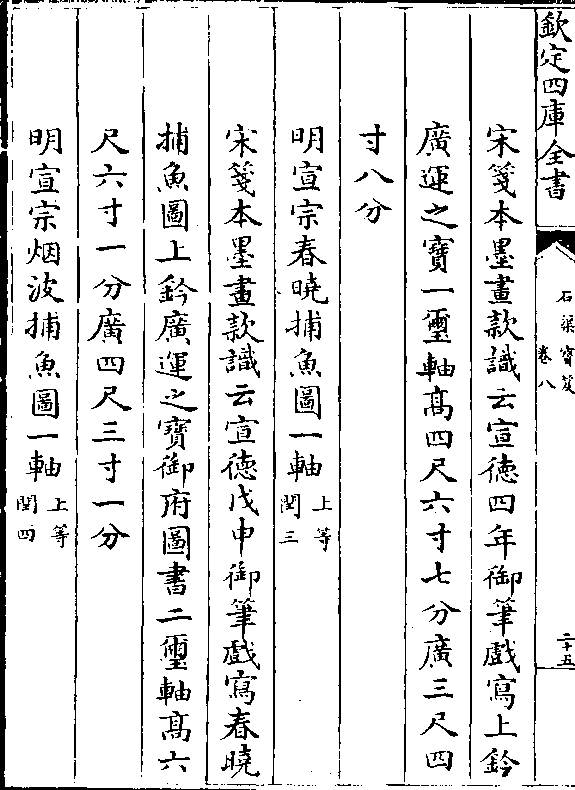 欽定四庫全書
石渠寳笈
卷八
二十五
宋箋本墨畫款識云宣德四年御筆戲寫上鈐
廣運之寶一璽軸髙四尺六寸七分廣三尺四
寸八分
明宣宗春曉捕魚圖一軸 上等 閏三
宋箋本墨畫款識云宣德戊申御筆戲寫春曉
捕魚圖上鈐廣運之寶御府圖書二璽軸髙六
尺六寸一分廣四尺三寸一分
明宣宗烟波捕魚圖一軸 上等 閏四